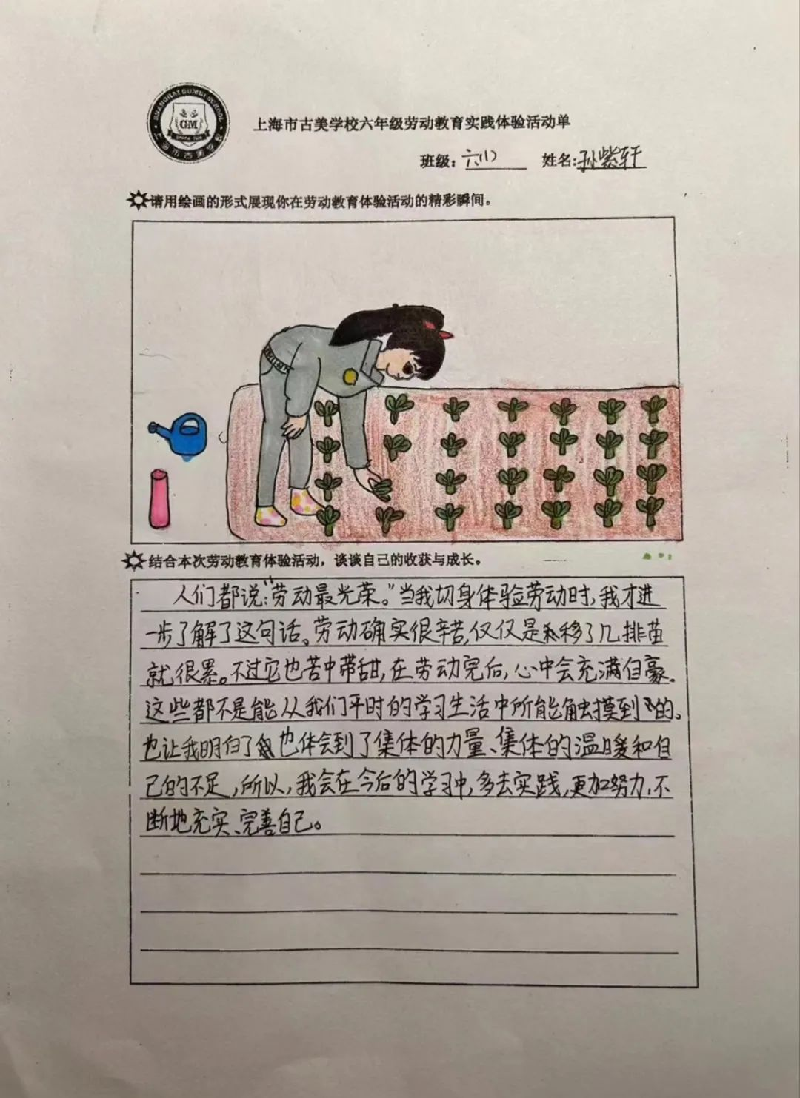 GM
上海市古美学校六年级劳动教育实践体验活动单
班级:六(1) 姓名:孙紫轩
请用绘画的形式展现你在劳动教育体验活动的精彩瞬间。
结合本次劳动教育体验活动，谈谈自己的收获与成长。
人们都说:"劳动最光荣。"当我切身体验劳动时,我才进
一步了解了这句话。劳动确实很辛苦,仅仅是移了几排苗
就很累。不过它也苦中带甜,在劳动完后,心中会充满自豪。
这些都不是能从我们平时的学习生活中所能触摸到的。
也让我明白了也体会到了集体的力量、集体的温暖和自
己的不足,所以,我会在今后的学习中,多去实践,更加努力,不
断地充实、完善自己。